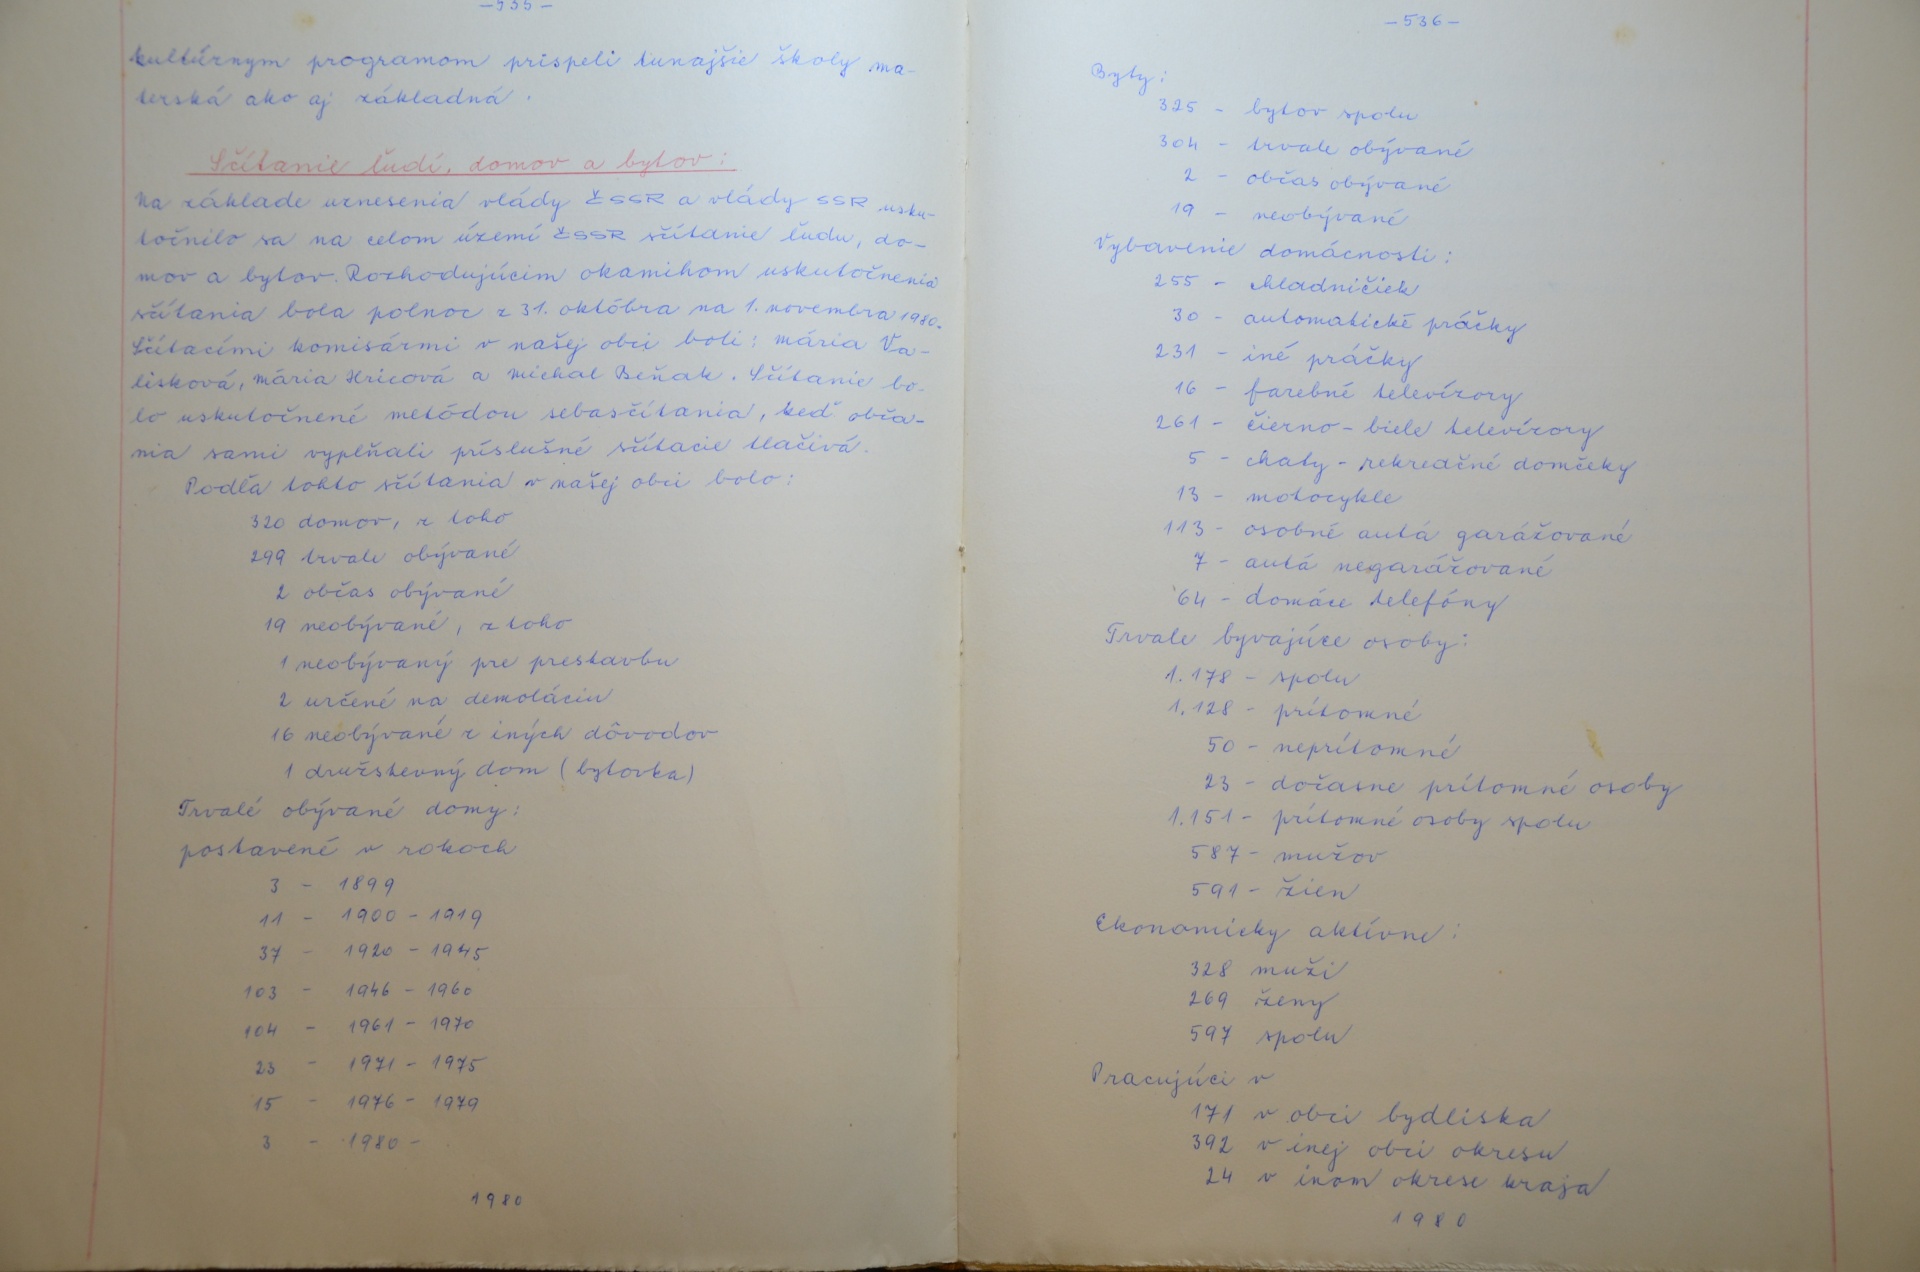 -535-
kultúrnym programom prispeli tunajšie školy ma-
terská ako aj základná.
Sčítanie ľudí, domov a bytov:
Na základe uznesenia vlády ČSSR a vlády SSR usku-
točnilo sa na celom území ČSSR sčítanie ľudu, do-
mov a bytov. Rozhodujúcim okamihom uskutočnenia
sčítania bola polnoc z 31. októbra na 1. novembra 1980.
Sčítacími komisármi v našej obci boli: Mária Va-
lisková, Mária Hricová a Michal Beňak. Sčítanie bo-
lo uskutočnené metódou sebasčítania, keď obča-
nia sami vypĺňali príslušné sčítacie tlačivá.
Podľa tohto sčítania v našej obci bolo:
320 domov, z toho
299 trvale obývané
2 občas obývané
19 neobývané, z toho
1 neobývaný pre prestavbu
2 určené na demoláciu
16 neobývané z iných dôvodov
1 družstevný dom (bytovka)
Trvalé obývané domy:
postavené v rokoch
3 - 1899
11 - 1900 - 1919
37 - 1920 - 1945
103 - 1946 - 1960
104 - 1961 - 1970
23 - 1971 - 1975
15 - 1976 - 1979
3 - 1980 -
1980
-536-
Byty:
325 - bytov spolu
304 - trvale obývané
2 - občas obývané
19 - neobývané
Vybavenie domácností:
255 - chladničiek
30 - automatické práčky
231 - iné práčky
16 - farebné televízory
261 - čierno-biele televízory
5 - chaty - rekreačné domčeky
13 - motocykle
113 - osobné autá garážované
7 - autá negarážované
64 - domáce telefóny
Trvale bývajúce osoby:
1.178 - spolu
1.128 - prítomné
50 - neprítomné
23 - dočasne prítomné osoby
1.151 - prítomné osoby spolu
587 - mužov
591 - žien
Ekonomicky aktívne:
328 muži
269 ženy
597 spolu
Pracujúci v
171 v obci bydliska
392 v inej obci okresu
24 v inom okrese kraja
1980